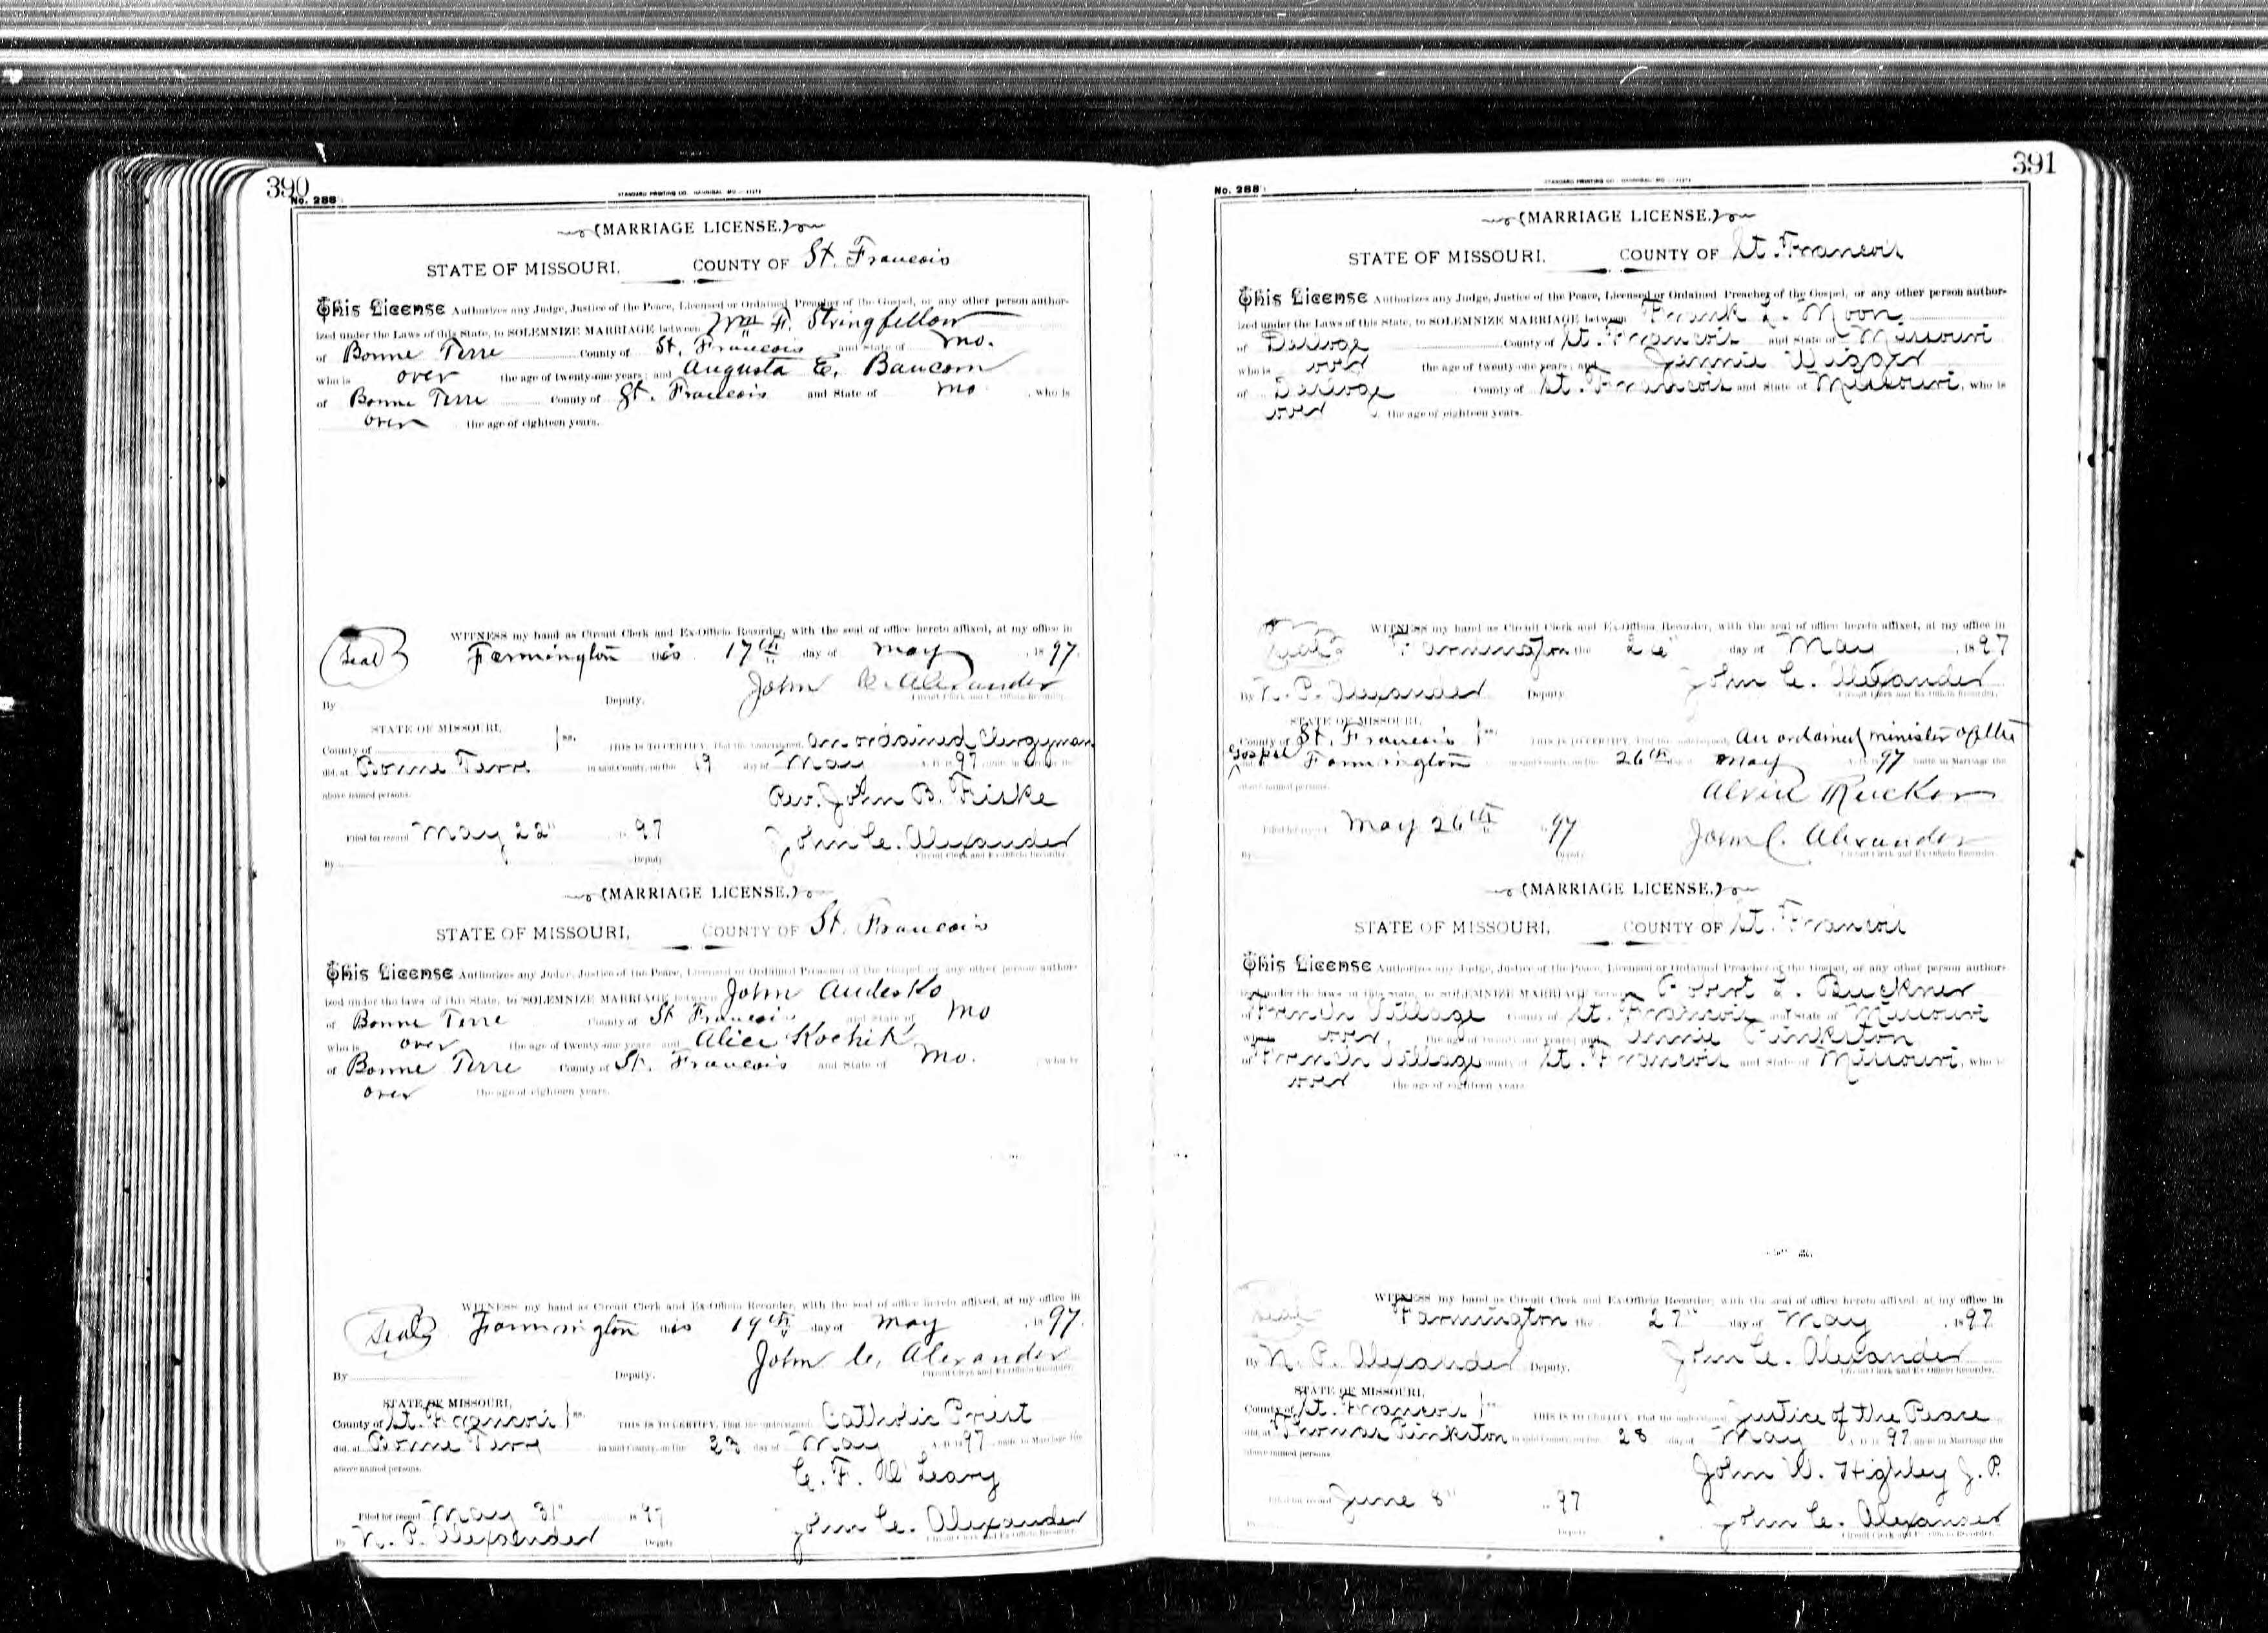 390
No. 288
STANDARD PRINTING CO. HANNIBAL MO
(MARRIAGE LICENSE.)
STATE OF MISSOURI, COUNTY OF St. Francois
This License Authorizes any Judge, Justice of the Peace, Licensed or Ordained Preacher of the Gospel, or any other person author-
ized under the Laws of this State, to SOLEMNIZE MARRIAGE between Wm F. Stringfellow
of Bonne Terre County of St. Francois and State of Mo.
who is over the age of twenty-one years; and Augusta E. Baucom
of Bonne Terre County of St. Francois and State of Mo , who is
over the age of eighteen years.
WITNESS my hand as Circuit Clerk and Ex-Officio Recorder, with the seal of office hereto affixed, at my office in
Seal Farmington this 17th day of May , 1897.
John C. Alexander
By Deputy. Circuit Clerk and Ex-Officio Recorder.
STATE OF MISSOURI,
County of ss. THIS IS TO CERTIFY, That the undersigned an ordained Clergyman
did, at Bonne Terre in said County, on the 19 day of May A. D. 1897 unite in Marriage the
above named persons. Rev. John B. Fiske
Filed for record May 22" 1897 John C. Alexander
By Deputy Circuit Clerk and Ex-Officio Recorder.
(MARRIAGE LICENSE.)
STATE OF MISSOURI, COUNTY OF St. Francois
This License Authorizes any Judge, Justice of the Peace, Licensed or Ordained Preacher of the Gospel, or any other person author-
ized under the laws of this State, to SOLEMNIZE MARRIAGE between John Andesko
of Bonne Terre County of St Francois and State of Mo
who is over the age of twenty-one years and Alice Kochik
of Bonne Terre County of St. Francois and State of Mo. , who is
over the age of eighteen years.
WITNESS my hand as Circuit Clerk and Ex-Officio Recorder, with the seal of office hereto affixed, at my office in
Seal Farmington this 19th day of May , 1897.
John C. Alexander
By Deputy. Circuit Clerk and Ex-Officio Recorder.
STATE OF MISSOURI,
County of St. Francois ss. THIS IS TO CERTIFY, That the undersigned Catholic Priest
did, at Bonne Terre in said County, on the 23 day of May A. D. 1897 unite in Marriage the
above named persons. C. F. O'Leary
Filed for record May 31" 1897 John C. Alexander
By N. P. Alexander Deputy Circuit Clerk and Ex-Officio Recorder.
391
No. 288
(MARRIAGE LICENSE.)
STATE OF MISSOURI, COUNTY OF St. Francois
This License Authorizes any Judge, Justice of the Peace, Licensed or Ordained Preacher of the Gospel, or any other person author-
ized under the Laws of this State, to SOLEMNIZE MARRIAGE between Frank L. Moon
of Desloge County of St. Francois and State of Missouri
who is over the age of twenty-one years; and Jennie Wigger
of Desloge County of St. Francois and State of Missouri, who is
over the age of eighteen years.
WITNESS my hand as Circuit Clerk and Ex-Officio Recorder, with the seal of office hereto affixed, at my office in
Seal Farmington the 26" day of May , 1897
By N. P. Alexander Deputy John C. Alexander
Circuit Clerk and Ex-Officio Recorder.
STATE OF MISSOURI,
County of St. Francois ss. THIS IS TO CERTIFY, That the undersigned, an ordained minister of the
Gospel Farmington in said County, on the 26th May 97 unite in Marriage the
above named persons. Alvin Rucker
Filed for record May 26th 97 John C. Alexander
By Deputy Circuit Clerk and Ex-Officio Recorder.
(MARRIAGE LICENSE.)
STATE OF MISSOURI, COUNTY OF St. Francois
This License Authorizes any Judge, Justice of the Peace, Licensed or Ordained Preacher of the Gospel, or any other person author-
ized under the laws of this State, to SOLEMNIZE MARRIAGE between Robert L. Buckner
of French Village County of St. Francois and State of Missouri
who is over, the age of twenty-one years; and Annie Pinkston
of French Village County of St. Francois and State of Missouri, who is
over the age of eighteen years
WITNESS my hand as Circuit Clerk and Ex-Officio Recorder, with the seal of office hereto affixed, at my office in
Seal Farmington the 27" day of May , 1897
By N. P. Alexander Deputy. John C. Alexander
Circuit Clerk and Ex-Officio Recorder.
STATE OF MISSOURI,
County of St. Francois ss. THIS IS TO CERTIFY, That the undersigned Justice of the Peace
did, at Thomas Pinkston in said County, on the 28 day of May A. D. 1897 unite in Marriage the
above named persons John W. Highley J. P.
Filed for record June 8" 1897 John C. Alexander
Deputy Circuit Clerk and Ex-Officio Recorder.